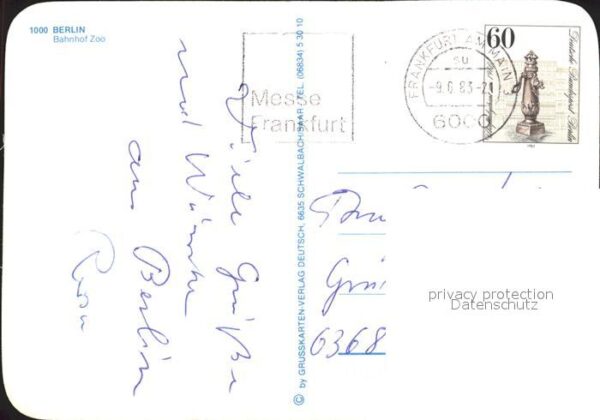 1000 BERLIN
Bahnhof Zoo
Viele Grüße
und Wünsche
aus Berlin
© by GRUSSKARTEN-VERLAG DEUTSCH, 6635 SCHWALBACH/SAAR, TEL. (06834) 5 30 10
Messe
Frankfurt
FRANKFURT AM MAIN
su
-9.6.83-21
6000
60
Deutsche Bundespost Berlin
6368
privacy protection
Datenschutz